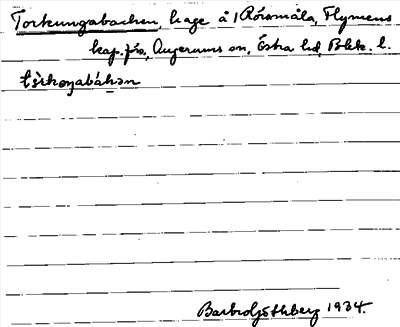 Torkungabacken, hage å 1 Rörsmåla, Flymens
kap.förs, Augerums sn, Östra hd, Blek. l.
tòrkoŋabákən
Barbro Göthberg 1934.